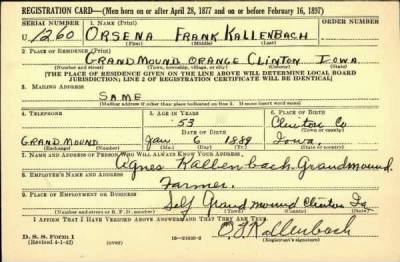 REGISTRATION CARD—(Men born on or after April 28, 1877 and on or before February 16, 1897)
SERIAL NUMBER 1. NAME (Print) ORDER NUMBER
U. 1260 ORSENA FRANK KALLENBACH
(First) (Middle) (Last)
2. PLACE OF RESIDENCE (Print)
GRAND MOUND ORANGE CLINTON IOWA
(Number and street) (Town, township, village, or city) (County) (State)
[THE PLACE OF RESIDENCE GIVEN ON THE LINE ABOVE WILL DETERMINE LOCAL BOARD
JURISDICTION; LINE 2 OF REGISTRATION CERTIFICATE WILL BE IDENTICAL]
3. MAILING ADDRESS
SAME
[Mailing address if other than place indicated on line 2. If same insert word same]
4. TELEPHONE 5. AGE IN YEARS 6. PLACE OF BIRTH
53 Clinton Co
DATE OF BIRTH (Town or county)
GRAND MOUND Jan 6 1889 Iowa.
(Exchange) (Number) (Mo.) (Day) (Yr.) (State or country)
7. NAME AND ADDRESS OF PERSON WHO WILL ALWAYS KNOW YOUR ADDRESS
Agnes Kallenbach. Grandmound.
8. EMPLOYER'S NAME AND ADDRESS
Farmer.
9. PLACE OF EMPLOYMENT OR BUSINESS
Self Grand mound Clinton Ia
(Number and street or R. F. D. number) (Town) (County) (State)
I AFFIRM THAT I HAVE VERIFIED ABOVE ANSWERS AND THAT THEY ARE TRUE.
D. S. S. Form 1
(Revised 4-1-42) (over) O F Kallenbach
(Registrant's signature)